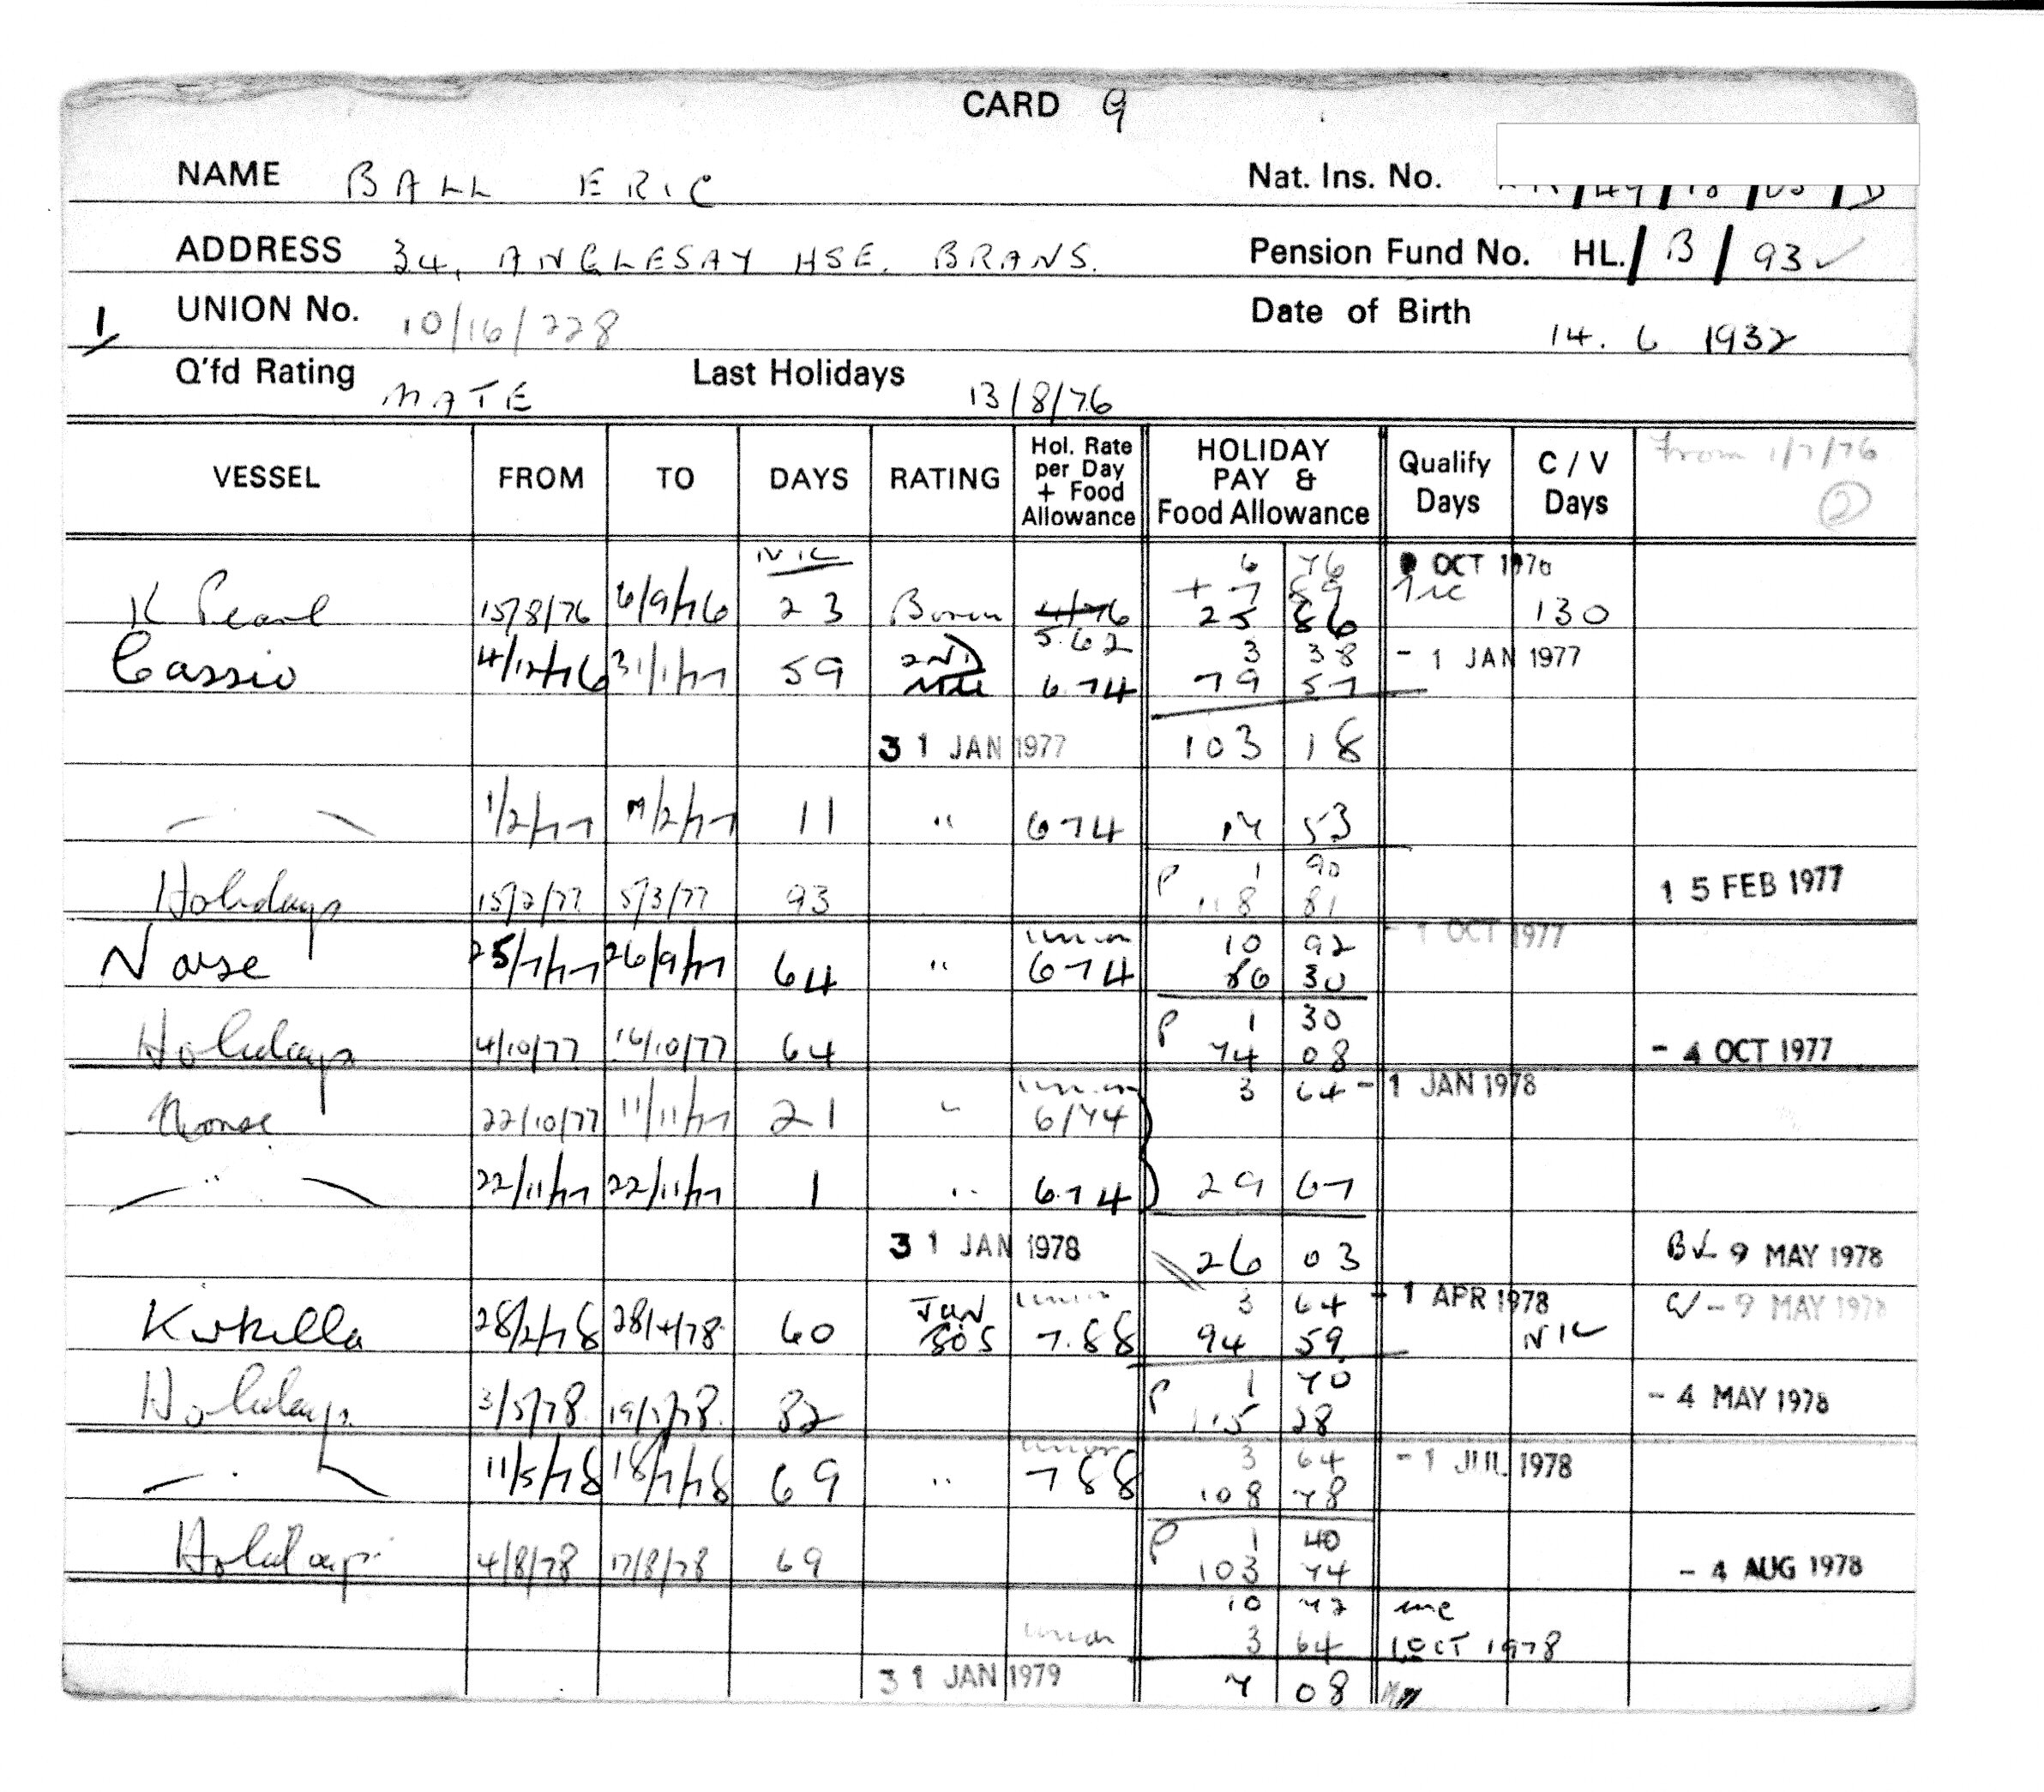 CARD 9
NAME BALL ERIC Nat. Ins. No.
ADDRESS 34, ANGLESAY HSE. BRANS. Pension Fund No. HL. / B / 93 ✓
1/ UNION No. 10/16/228 Date of Birth 14. 6 1932
Q'fd Rating MATE Last Holidays 13/8/76
VESSEL FROM TO DAYS RATING Hol. Rate per Day + Food Allowance HOLIDAY PAY & Food Allowance Qualify Days C / V Days From 1/7/76 (2)
NIL 6 76 OCT 1976
+ 7 89
K Pearl 15/8/76 6/9/76 23 Bosun 4/76 25 86 130
5.62 3 38 - 1 JAN 1977
Cassio 4/12/76 31/1/77 59 2ND Mte 6.74 79 57
31 JAN 1977 103 18
1/2/77 11/2/77 11 " 6 74 14 53
P 1 90
Holidays 15/2/77 5/3/77 93 118 81 15 FEB 1977
union 10 92 - 1 OCT 1977
Norse 25/7/77 26/9/77 64 " 6 74 86 30
P 1 30
Holidays 4/10/77 16/10/77 64 74 08 - 4 OCT 1977
union 3 64 - 1 JAN 1978
Norse 22/10/77 11/11/77 21 " 6/74
" 22/11/77 22/11/77 1 " 6.74 29 67
31 JAN 1978 26 03 9 MAY 1978
union 3 64 - 1 APR 1978 - 9 MAY 1978
Kirkella 28/2/78 28/4/78 60 JUN BOS 7.88 94 59 NIL
P 1 70
Holidays 3/5/78 19/5/78 82 115 28 - 4 MAY 1978
union 3 64 - 1 JUL 1978
11/5/78 18/7/78 69 " 7 88 108 78
P 1 40
Holidays 4/8/78 17/8/78 69 103 74 - 4 AUG 1978
10 72
union 3 64 1 OCT 1978
31 JAN 1979 7 08